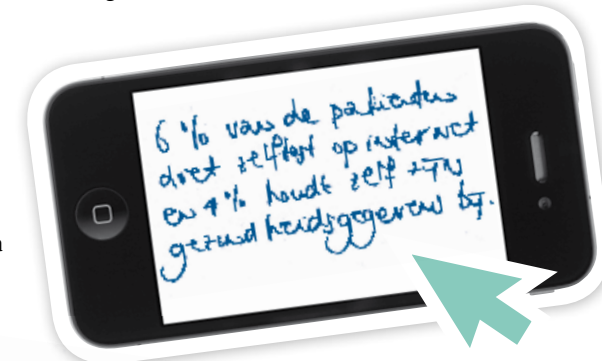 6 % van de patienten
doet zelftest op internet
en 4 % houdt zelf zijn
gezondheidsgegevens bij.